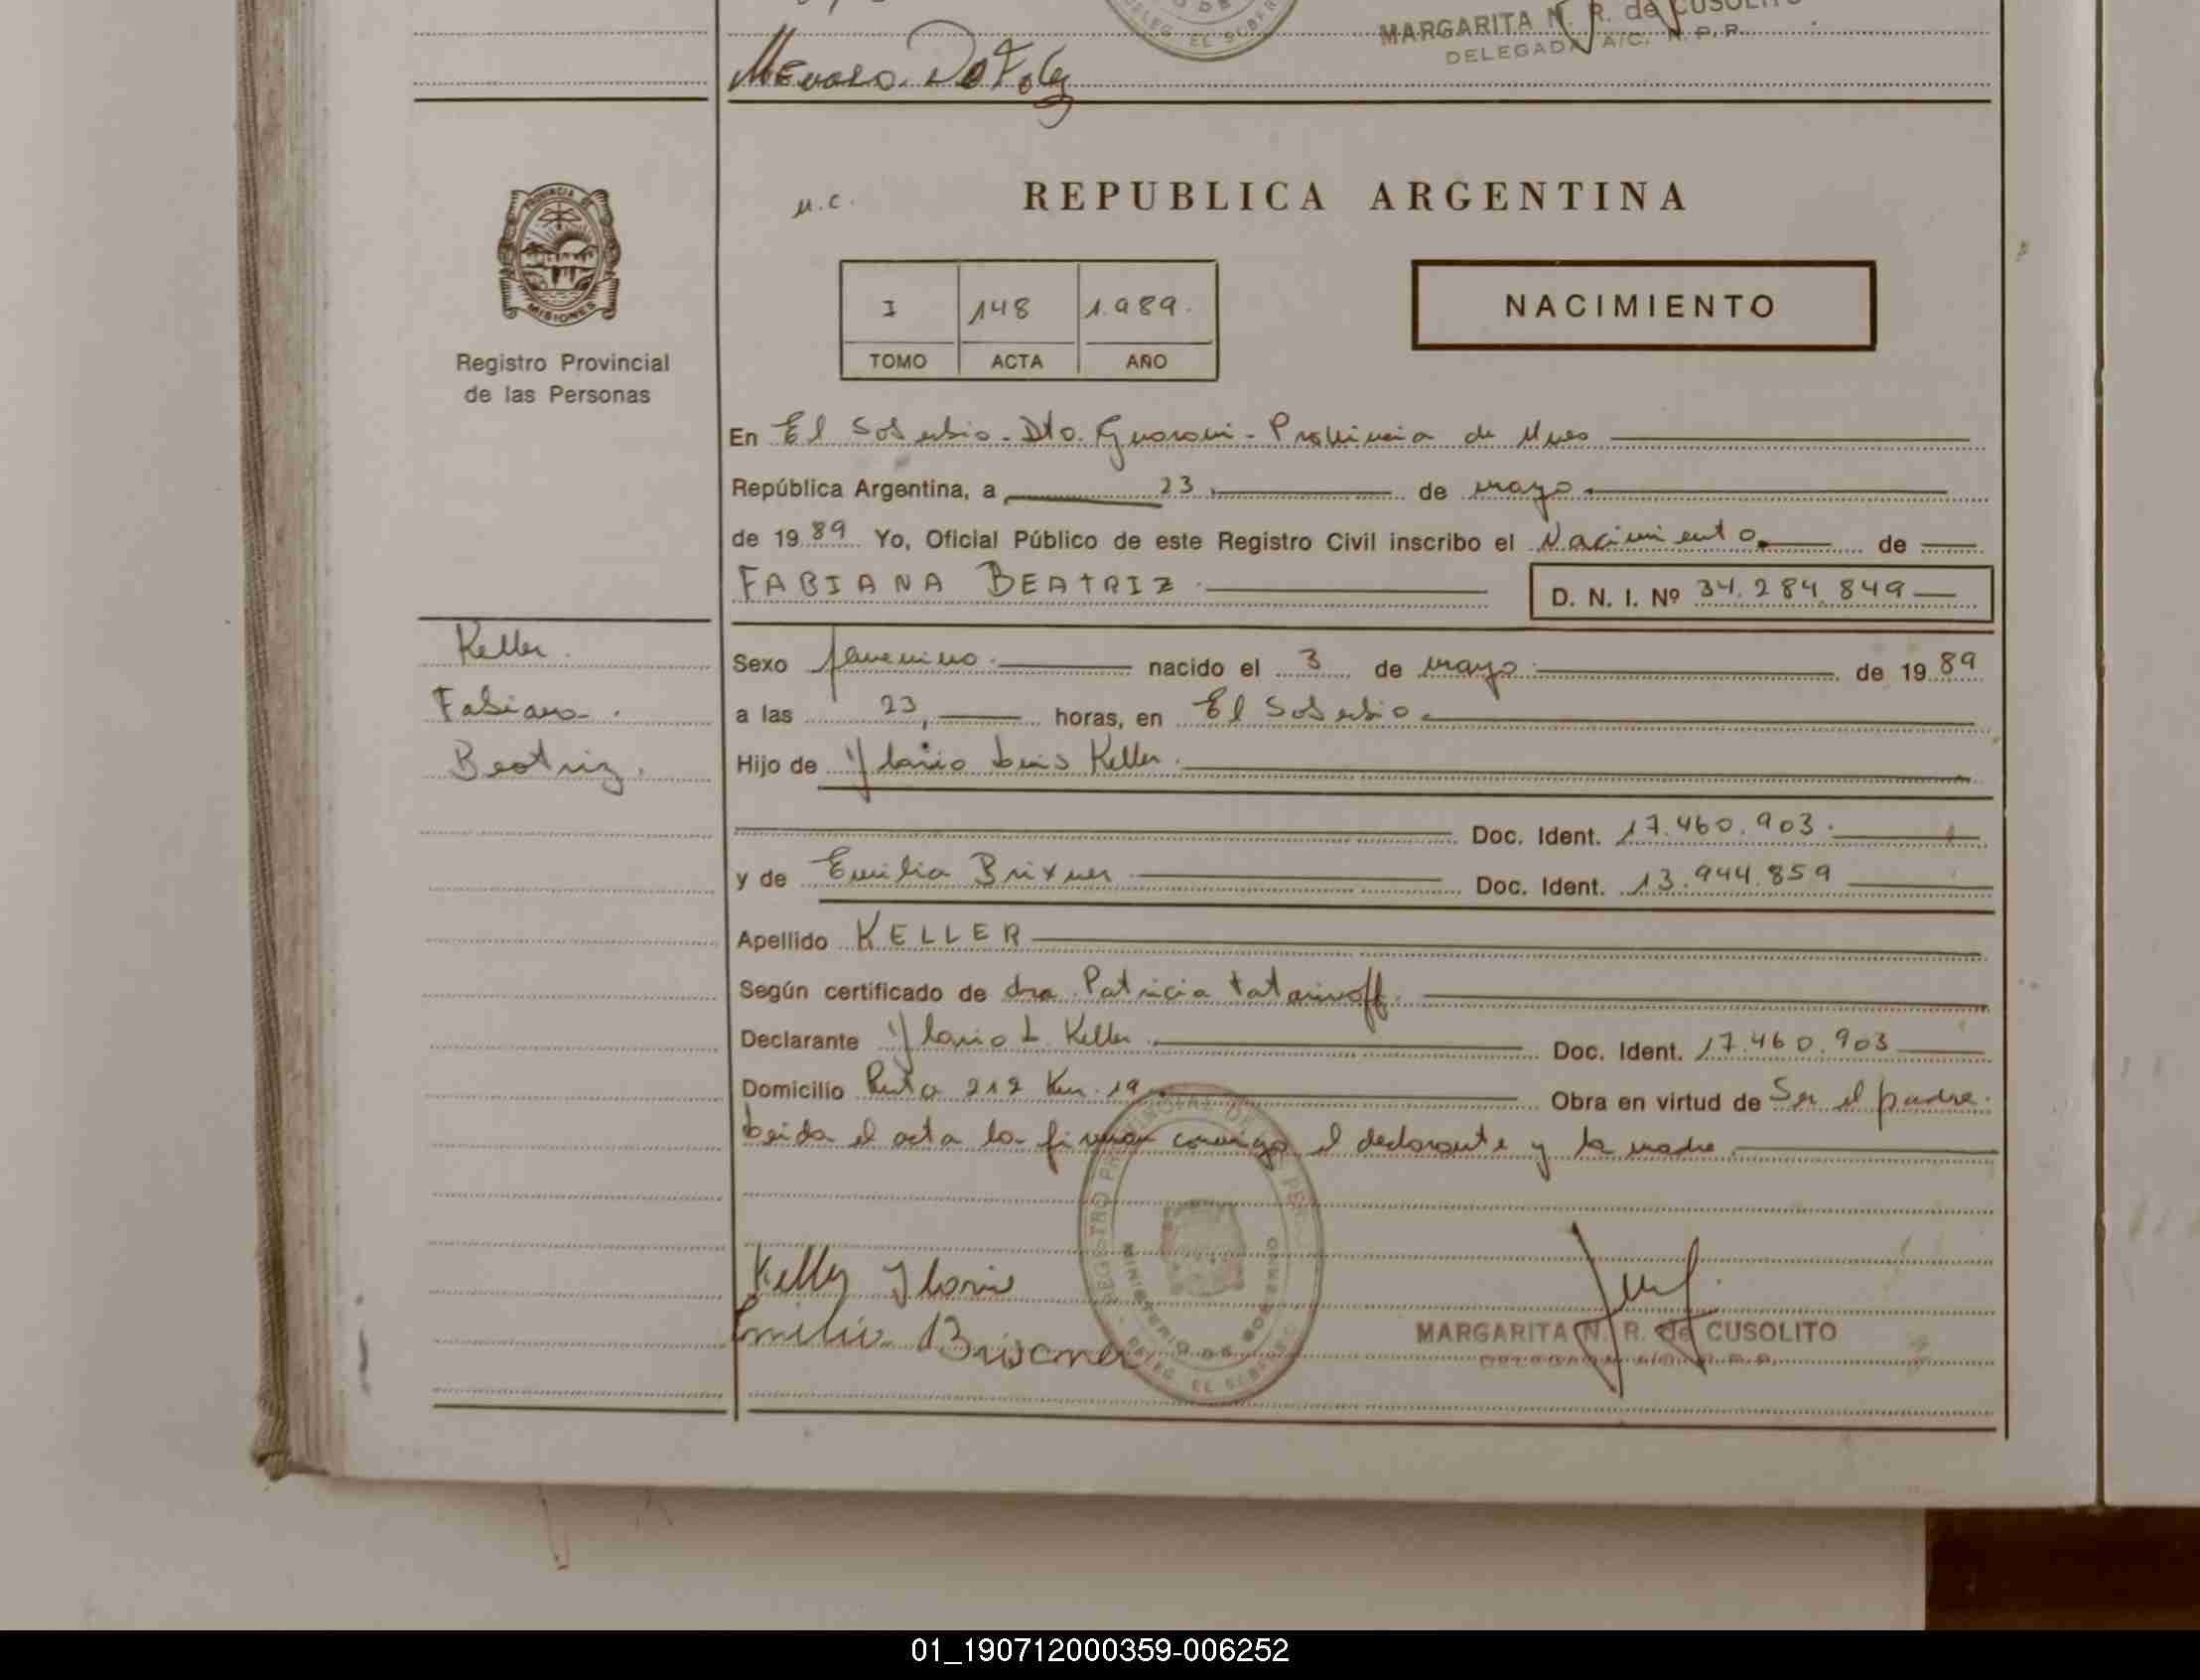 DELEG. EL SOBER
MARGARITA N. R. de CUSOLITO
DELEGADA A/C. R. P. R.
REPUBLICA ARGENTINA
PROVINCIA DE
MISIONES
Registro Provincial
de las Personas
I 148 1.989.
TOMO ACTA AÑO
NACIMIENTO
En El Soberbio - Dto. Guarani - Provincia de Mnes
República Argentina, a 23 de mayo
de 1989 Yo, Oficial Público de este Registro Civil inscribo el Nacimiento de
FABIANA BEATRIZ
D. N. I. Nº 34.284.849
Keller
Fabiana
Beatriz
Sexo femenino nacido el 3 de mayo de 1989
a las 23, horas, en El Soberbio
Hijo de Ylario Luis Keller
Doc. Ident. 17.460.903
y de Emilia Brixner Doc. Ident. 13.944.859
Apellido KELLER
Según certificado de dra. Patricia Tatarinoff
Declarante Ylario L. Keller Doc. Ident. 17.460.903
Domicilio Ruta 212 Km. 19 Obra en virtud de Ser el padre.
Leida el acta la firman conmigo el declarante y la madre
REGISTRO PROVINCIAL DE LAS PERS
MINISTERIO DE GOBIERNO
DELEG. EL SOBERBIO
Keller Ylario
Emilia
MARGARITA N. R. de CUSOLITO
DELEGADA A/C. R. P. R.
01_190712000359-006252